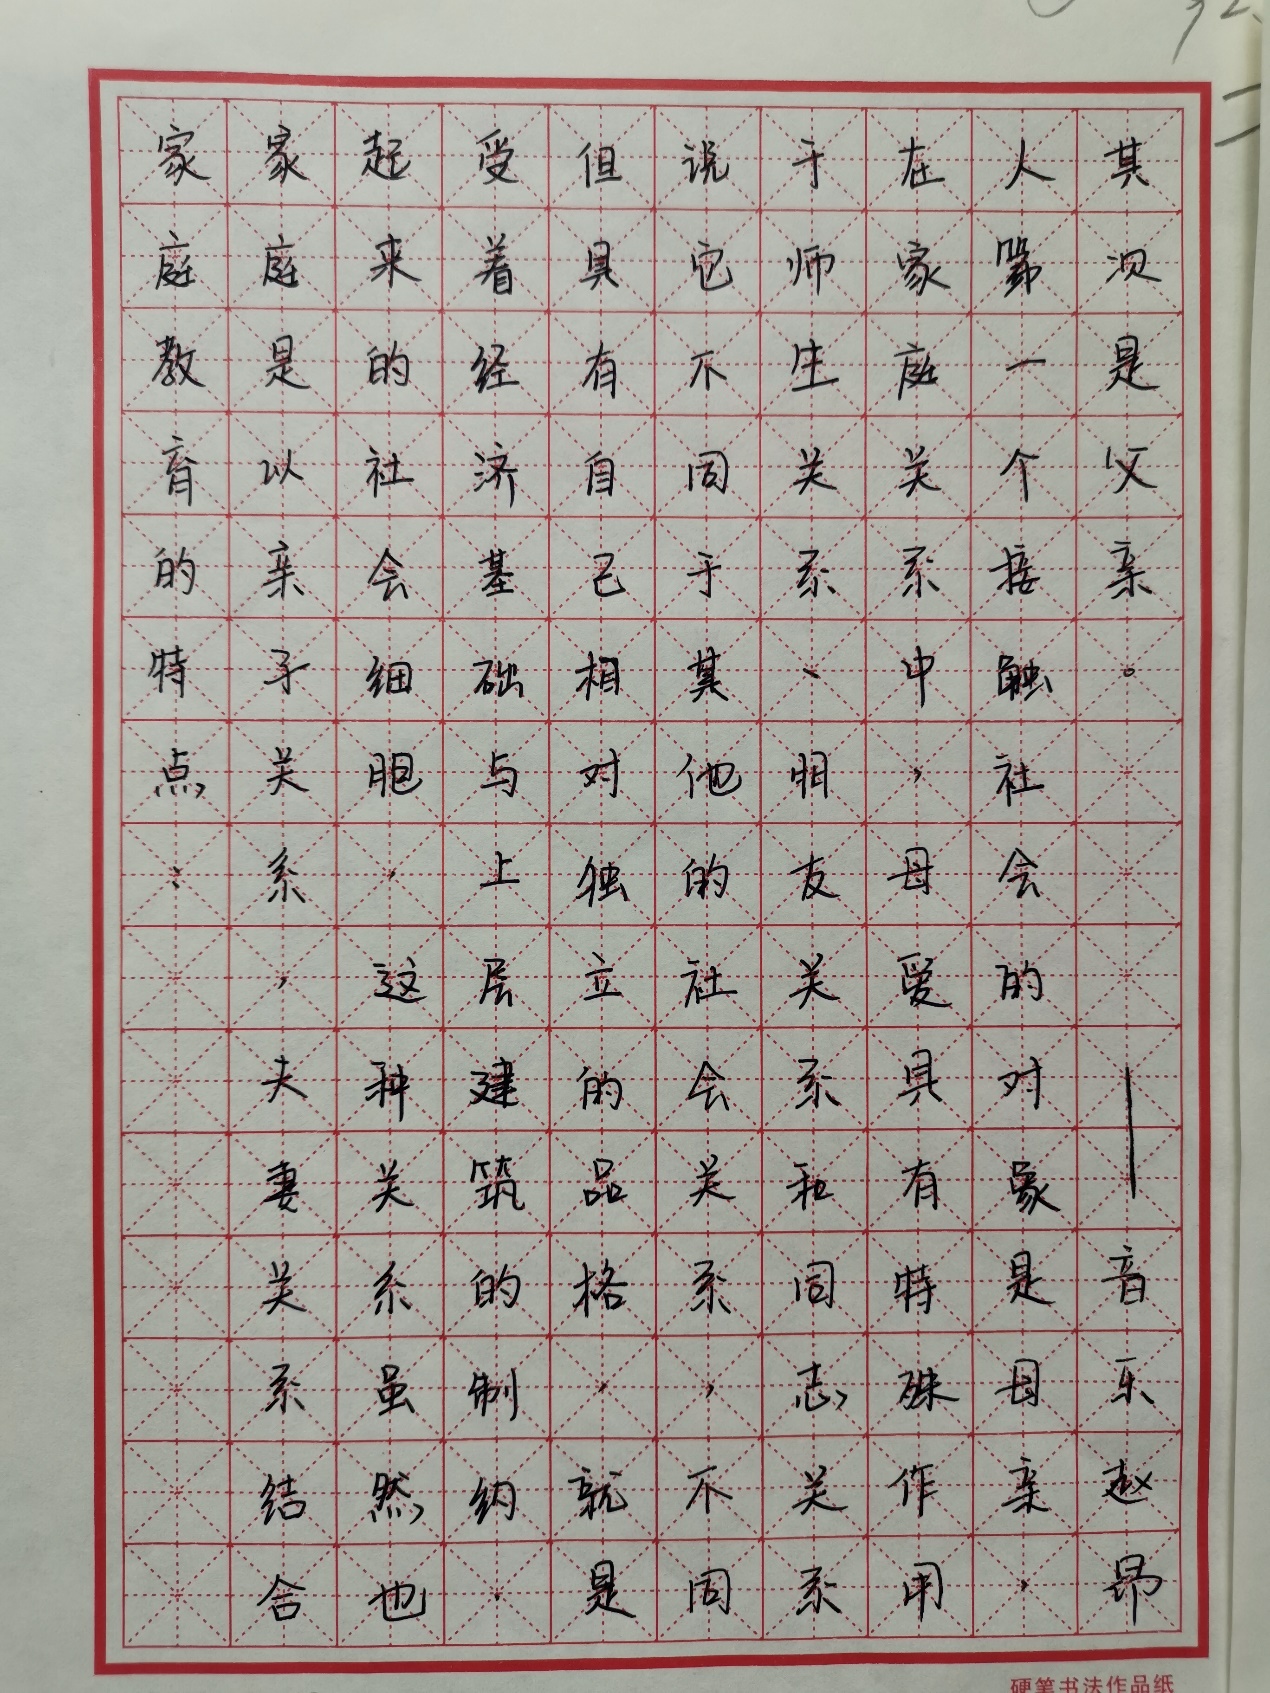 家庭教育的特点:
家庭是以亲子关系,夫妻关系结合
起来的社会细胞,这种关系虽然也
受着经济基础与上层建筑的制约,
但具有自己相对独立的品格,就是
说它不同于其他的社会关系,不同
于师生关系、朋友关系和同志关系
在家庭关系中,母爱具有特殊作用
人第一个接触社会的对象是母亲,
其次是父亲。 —音乐赵昂
硬笔书法作品纸